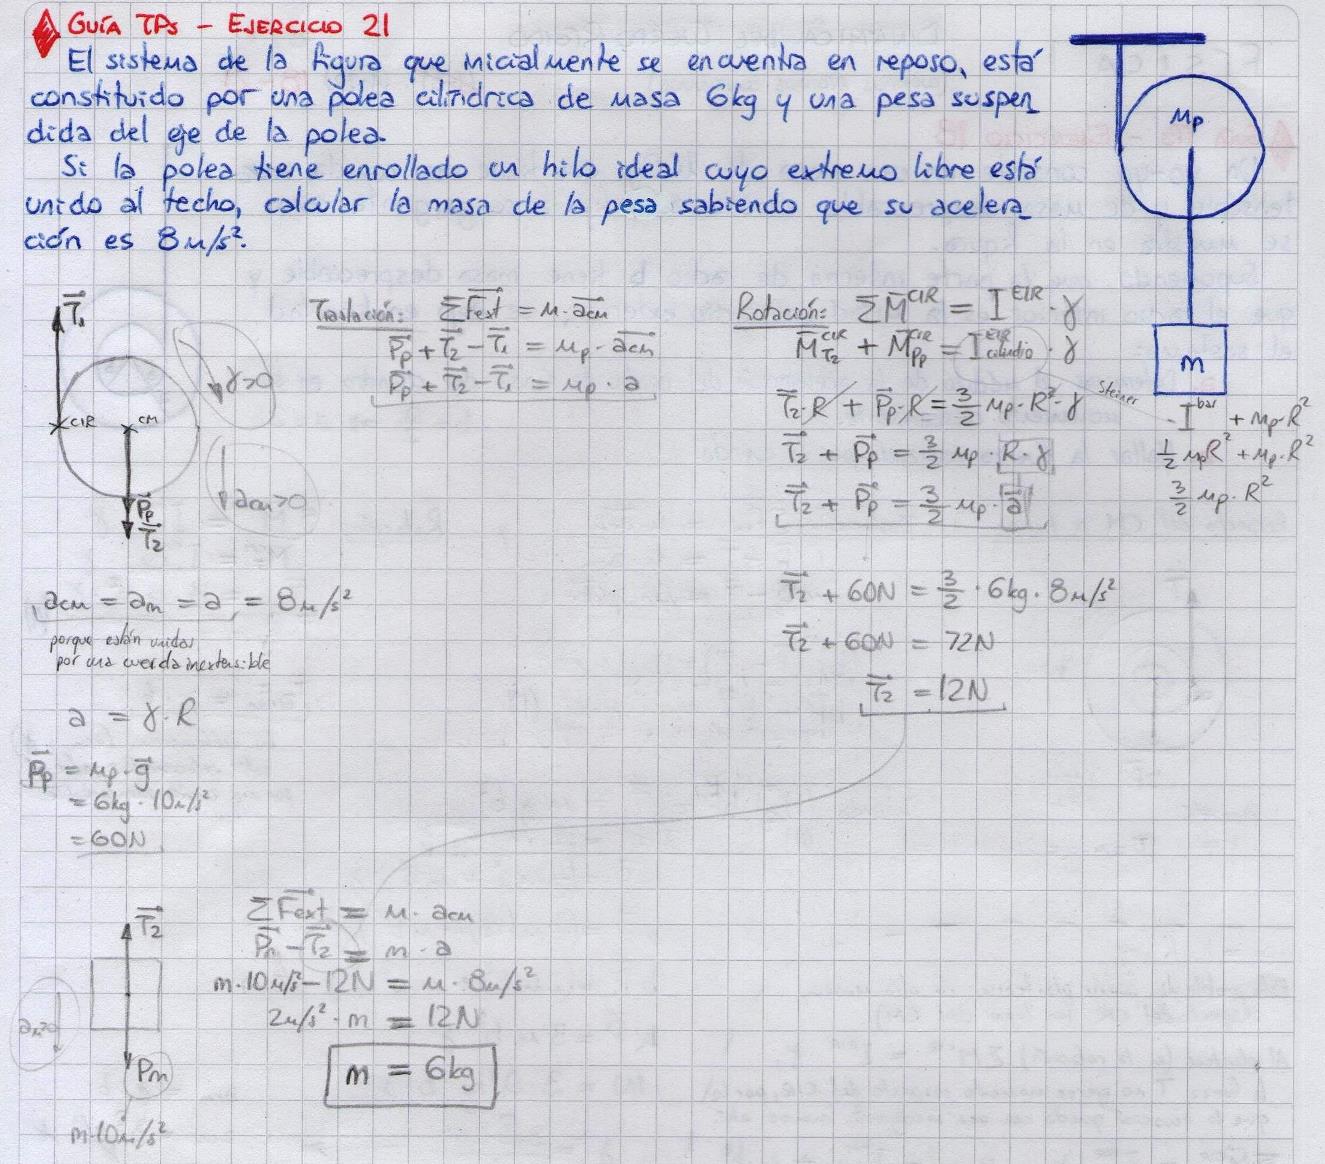 GUÍA TPs – EJERCICIO 21
El sistema de la figura que inicialmente se encuentra en reposo, está
constituido por una polea cilíndrica de masa 6kg y una pesa suspen
dida del eje de la polea.
Si la polea tiene enrollado un hilo ideal cuyo extremo libre está
unido al techo, calcular la masa de la pesa sabiendo que su acelera
ción es 8m/s².
Mp
m
T₁
γ>0
CIR
CM
acm>0
Pp
T₂
Traslación: ΣFext = m·acm
Pp + T₂ − T₁ = mp·acm
Pp + T₂ − T₁ = mp·a
Rotación: ΣM^CIR = I^CIR·γ
M_T₂^CIR + M_Pp^CIR = I_cilindro^CIR·γ
T₂·R + Pp·R = 3/2 mp·R²·γ
Steiner
I^bar + mp·R²
1/2 mpR² + mp·R²
3/2 mp·R²
T₂ + Pp = 3/2 mp·R·γ
T₂ + Pp = 3/2 mp·a
T₂ + 60N = 3/2 · 6kg · 8m/s²
T₂ + 60N = 72N
T₂ = 12N
acm = am = a = 8m/s²
porque están unidas
por una cuerda inextensible
a = γ·R
Pp = mp·g
= 6kg · 10m/s²
= 60N
T₂
am>0
Pm
m·10m/s²
ΣFext = m·acm
Pm − T₂ = m·a
m·10m/s² − 12N = m·8m/s²
2m/s²·m = 12N
m = 6kg